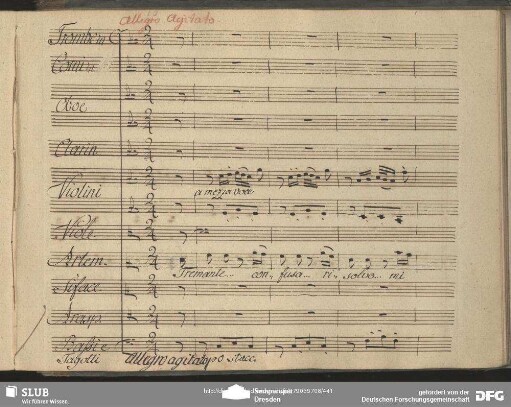 Allegro Agitato
Trombe in C
Corni in
Oboe
Clarin
Violini
a mezza voce
Viole
Artem.
Tremante... con- fusa... ri- solvo... mi
Siface
Araspe
Bassi e
Fagotti
Allegro agitato
po stacc.
SLUB
Wir führen Wissen.
Dresden
gefördert von der
Deutschen Forschungsgemeinschaft
DFG